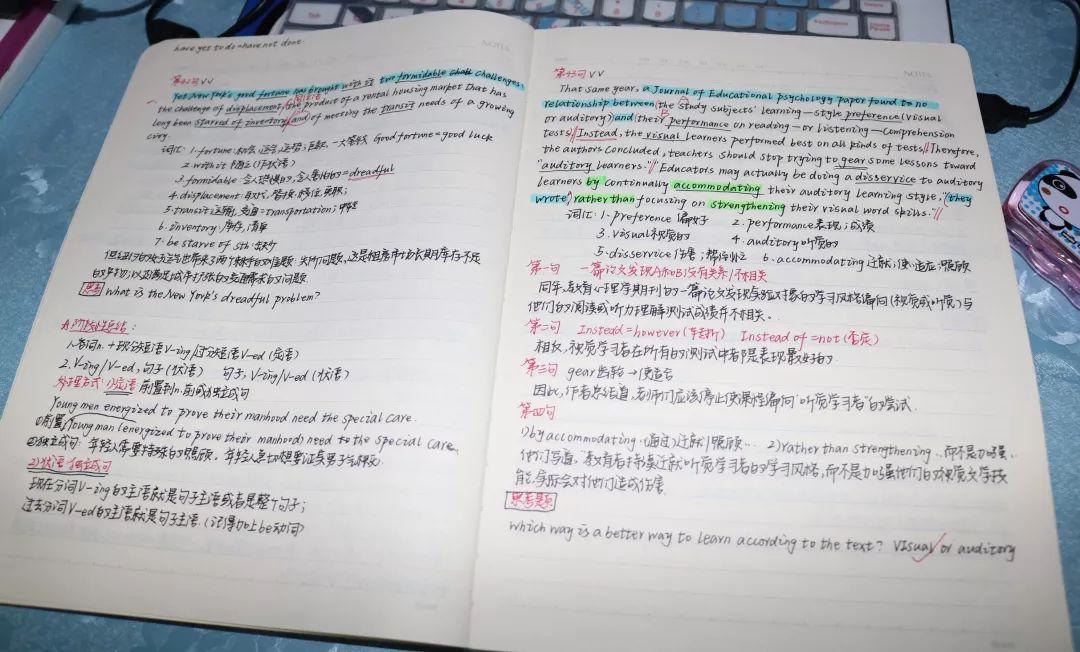 have yet to do = have not done
NOTES
第42句 VV
Yet New York's good fortune has brought with it two formidable challenges:
the challenge of displacement, the product of a rental housing market that has
long been starved of inventory, and of meeting the transit needs of a growing
city.
词汇: 1. fortune: 运气; Good fortune = good luck
2. with it 随之 (作状语)
3. formidable 令人恐惧的, = dreadful
4. displacement: 取代, 替换, 移位
5. transit 运输, = transportation;
6. inventory 库存, 清单
7. be starve of sth 缺乏
思考 What is the New York's dreadful problem?
阶段总结:
1. 名词n. + 现分短语 V-ing/过分短语 V-ed (定语)
2. V-ing/V-ed, 句子 (状语) 句子, V-ing/V-ed (状语)
处理方式: 1) 定语 前置到n.前或独立成句
Young men energized to prove their manhood need the special care.
①前置: Young man (energized to prove their manhood) need to the special care.
②独立成句: 年轻人需要特殊的照顾,
2) 状语: 独立成句
现在分词V-ing的主语就是句子主语或者是整个句子;
过去分词V-ed的主语就是句子主语. (记得加上be动词)
NOTES
第43句 VV
That same year, a Journal of Educational psychology paper found to no
relationship between (the study subjects' learning-style preference (visual
A
or auditory) and (their performance on reading-or listening-comprehension
B
tests. Instead, the visual learners performed best on all kinds of tests. Therefore,
the authors concluded, teachers should stop trying to gear some lessons toward
"auditory learners." Educators may actually be doing a disservice to auditory
learners by continually accommodating their auditory learning style, "they
wrote, rather than focusing on strengthening their visual word skills."
词汇: 1. preference 偏好 2. performance 表现; 成绩
3. visual 视觉的 4. auditory 听觉的
5. disservice 伤害; 帮倒忙 6. accommodating 迁就; 使适应; 照顾
第一句 一篇论文发现A和B没有关系/不相关
同年, 教育心理学期刊的一篇论文发现实验对象的学习风格偏向(视觉或听觉)与
他们的阅读或听力理解测试成绩并不相关。
第二句 Instead = however (转折) Instead of = not (否定)
相反, 视觉学习者在所有的测试中都是表现最好的.
第三句 gear 齿轮 → 使适合
因此, 作者总结道, 老师们应该停止使课程偏向"听觉学习者"的尝试.
第四句
1) by accommodating (通过)迁就/照顾... 2) rather than strengthening 而不是加强...
他们写道, "教育者持续迁就听觉学习者的学习风格, 而不是加强他们的视觉文字技
能, 实际会对他们造成伤害.
思考题
Which way is a better way to learn according to the text? Visual or auditory